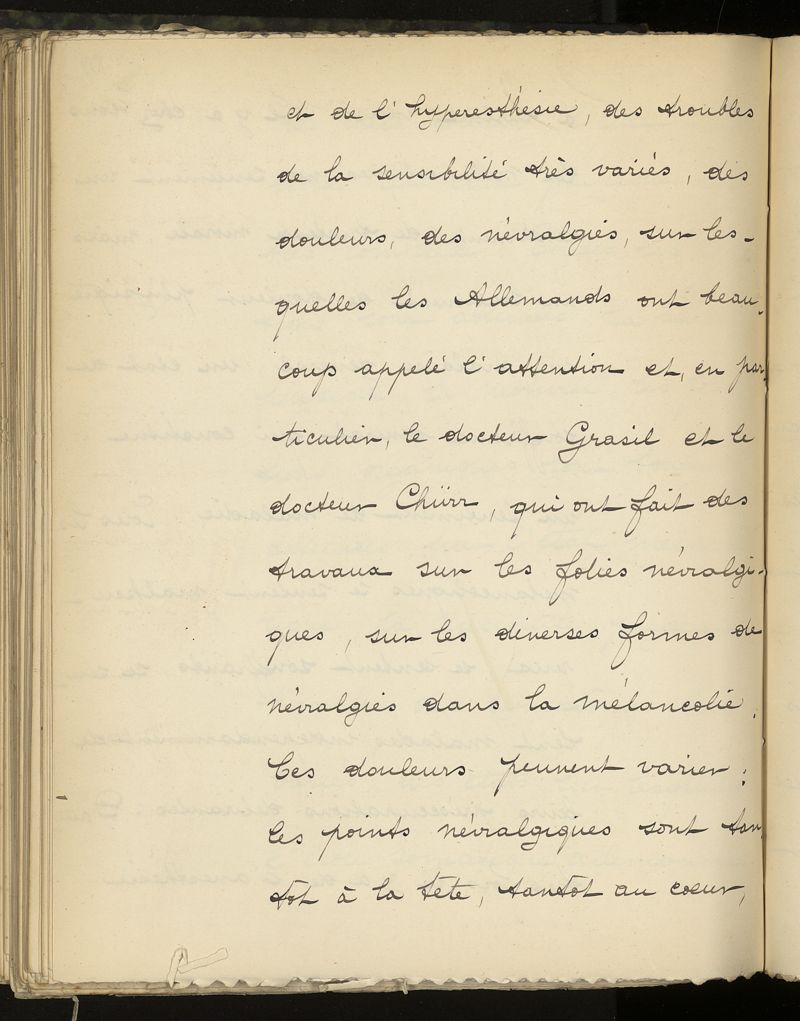 et de l'hyperesthésie, des troubles
de la sensibilité très variés, des
douleurs, des névralgies, sur les-
quelles les Allemands ont beau-
coup appelé l'attention et, en par-
ticulier, le docteur Grasil et le
docteur Chürr, qui ont fait des
travaux sur les folies névralgi-
ques, sur les diverses formes de
névralgies dans la mélancolie.
Ces douleurs peuvent varier :
les points névralgiques sont tan
tôt à la tête, tantôt au coeur,